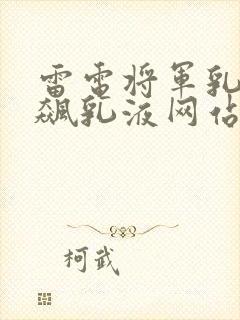 雷电将军乳
飙乳液网站
柯武